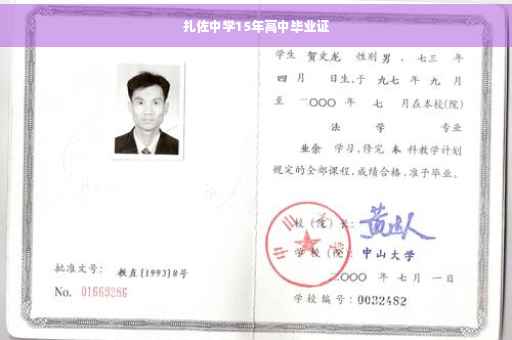 扎佐中学15年高中毕业证
学生 贺文龙 性别 男 、七三 年
四 月 日生,于 九七 年 九 月
至 二〇〇〇 年 七 月在本校(院)
法 学 专业
业余 学习,修完 本 科教学计划
规定的全部课程,成绩合格,准予毕业。
校(院)长:
学校(院): 中山大学
二〇〇〇 年 七 月 一 日
学校编号:0032482
批准文号: 教直[1993]8号
No. 01669286